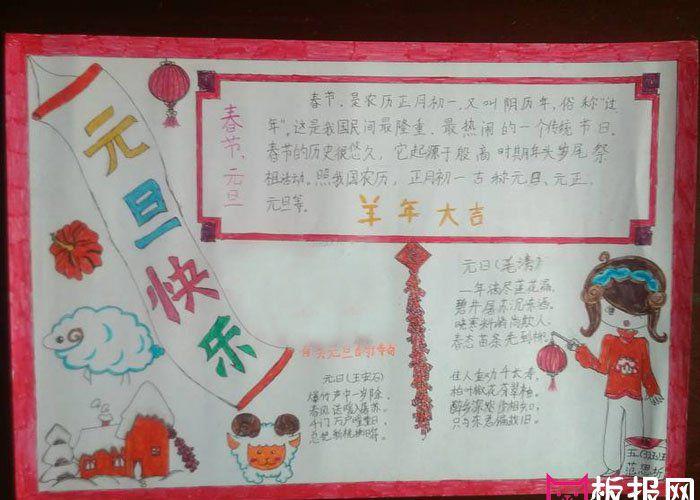 元旦快乐
春节、元旦
春节,是农历正月初一,又叫阴历年,俗称“过
年”。这是我国民间最隆重、最热闹的一个传统节日。
春节的历史很悠久,它起源于殷商时期年头岁尾祭
祖活动。照我国农历,正月初一古称元日、元正、
元旦等。
羊年大吉
元日(王安石)
爆竹声中一岁除,
春风送暖入屠苏。
千门万户曈曈日,
总把新桃换旧符。
元日(毛滂)
一年滴尽莲花漏。
碧井屠苏沉冻酒。
晓寒料峭尚欺人,
春态苗条先到柳。
佳人重劝千长寿。
柏叶椒花芬翠袖。
醉乡深处少相知,
只与东君偏故旧。
板报网